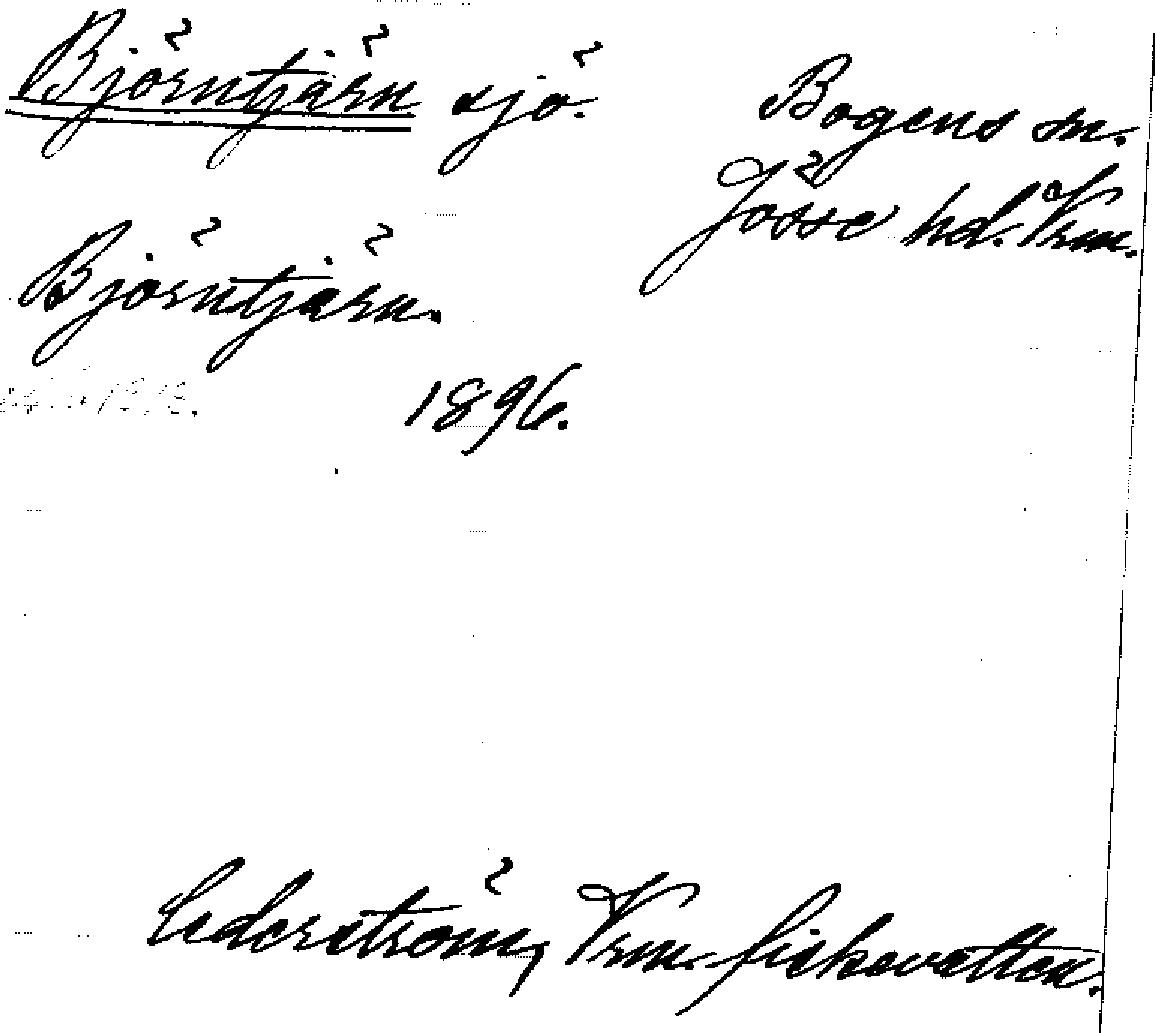 Björntjärn sjö.
Bogens sn.
Jösse hd. Vrm.
Björntjärn.
1896.
Cederström, Vrm. fiskevatten.